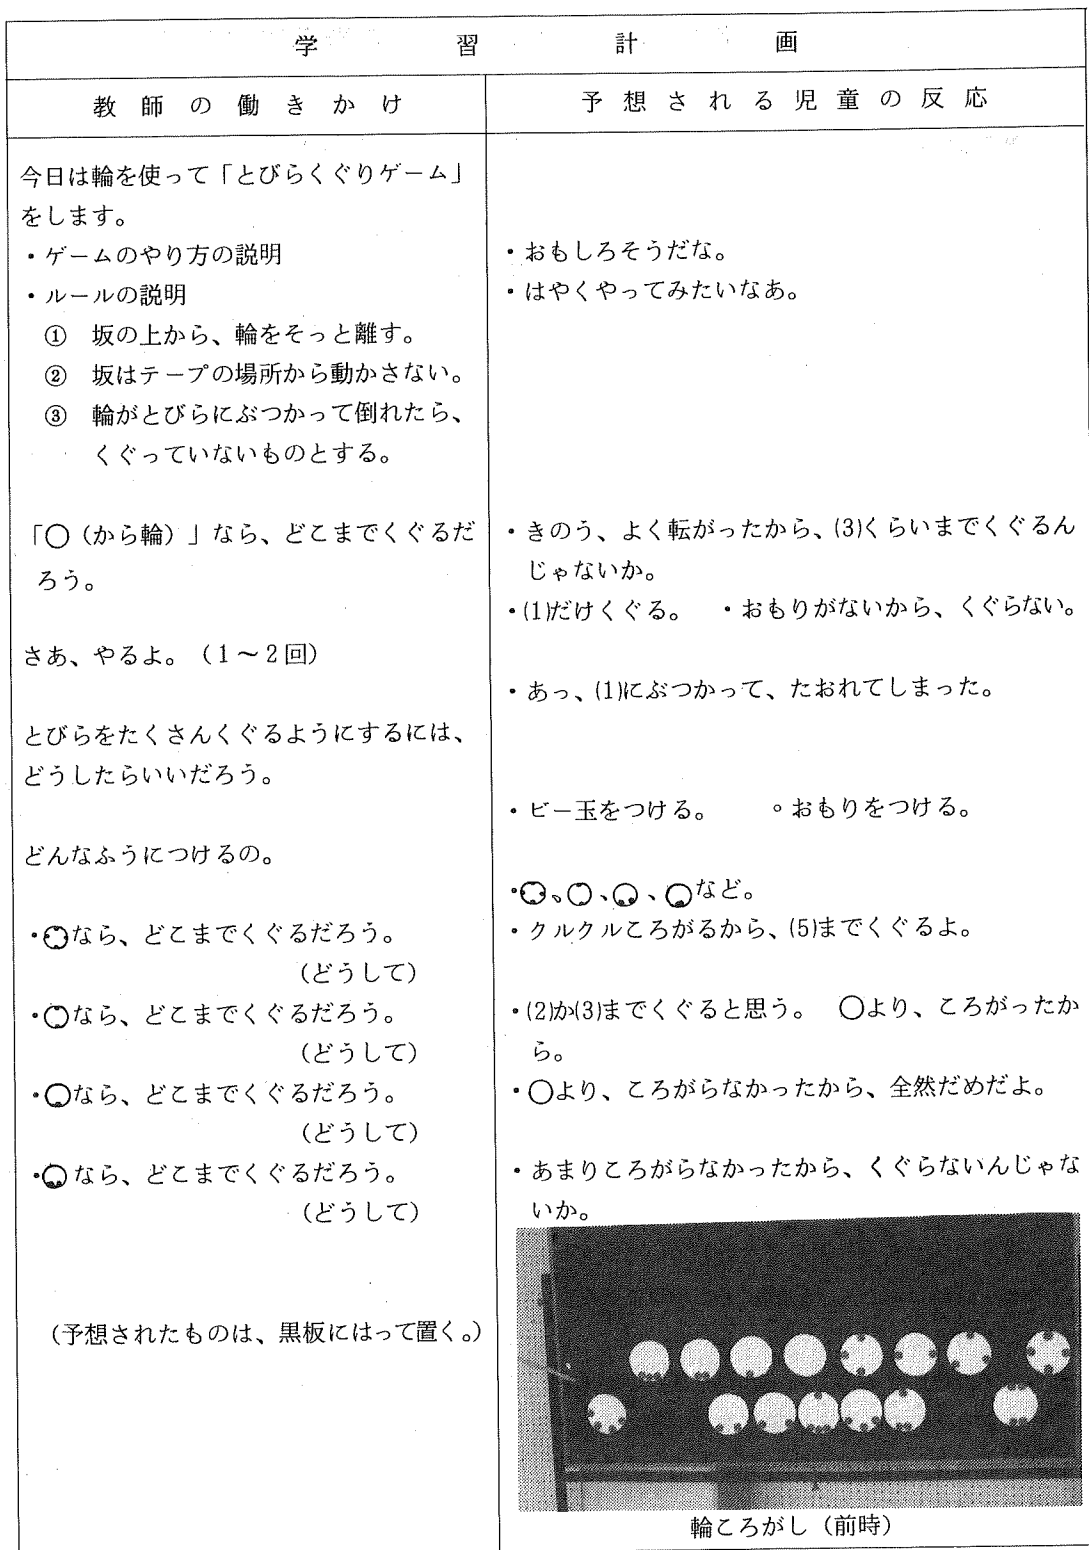 学習計画
教師の働きかけ
予想される児童の反応
今日は輪を使って「とびらくぐりゲーム」
をします。
・ゲームのやり方の説明
・ルールの説明
① 坂の上から、輪をそっと離す。
② 坂はテープの場所から動かさない。
③ 輪がとびらにぶつかって倒れたら、
くぐっていないものとする。
「○（から輪）」なら、どこまでくぐるだ
ろう。
さあ、やるよ。（1～2回）
とびらをたくさんくぐるようにするには、
どうしたらいいだろう。
どんなふうにつけるの。
・○なら、どこまでくぐるだろう。
（どうして）
・○なら、どこまでくぐるだろう。
（どうして）
・○なら、どこまでくぐるだろう。
（どうして）
・○なら、どこまでくぐるだろう。
（どうして）
（予想されたものは、黒板にはって置く。）
・おもしろそうだな。
・はやくやってみたいなあ。
・きのう、よく転がったから、(3)くらいまでくぐるん
じゃないか。
・(1)だけくぐる。 ・おもりがないから、くぐらない。
・あっ、(1)にぶつかって、たおれてしまった。
・ビー玉をつける。 ∘おもりをつける。
・○、○、○、○など。
・クルクルころがるから、(5)までくぐるよ。
・(2)か(3)までくぐると思う。 ○より、ころがったか
ら。
・○より、ころがらなかったから、全然だめだよ。
・あまりころがらなかったから、くぐらないんじゃな
いか。
輪ころがし（前時）